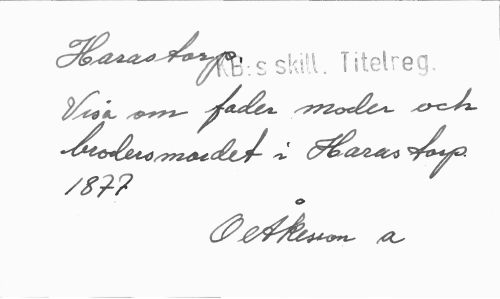 Harastorp.
KB:s skill. Titelreg.
Visa om fader moder och
brodersmordet i Harastorp.
1877
O Åkesson a